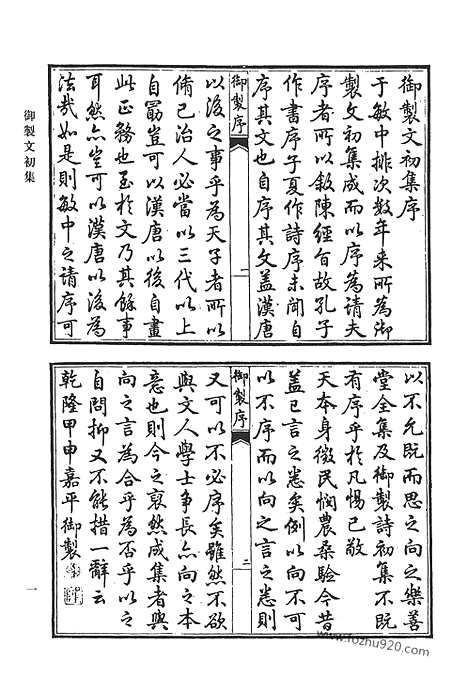 御製文初集序
于敏中排次数年来所為御
製文初集成而以序為請夫
序者所以敘陳經旨故孔子
作書序子夏作詩序未聞自
序其文也自序其文蓋漢唐
御製序
一
以後之事乎為天子者所以
脩己治人必當以三代以上
自勖豈可以漢唐以後自畫
此正務也至於文乃其餘事
耳然亦豈可以漢唐以後為
法哉如是則敏中之請序可
以不允既而思之向之樂善
堂全集及御製詩初集不既
有序乎於凡惕己敬
天本身徵民憫農桑驗今昔
蓋已言之悉矣例以向不可
以不序而以向之言之悉則
御製序
二
又可以不必序矣雖然不欲
與文人學士爭長亦向之本
意也則今之裒然成集者與
向之言為合乎為否乎以之
自問抑又不能措一辭云
乾隆甲申嘉平御製
御製文初集
一
www.fozhu920.com